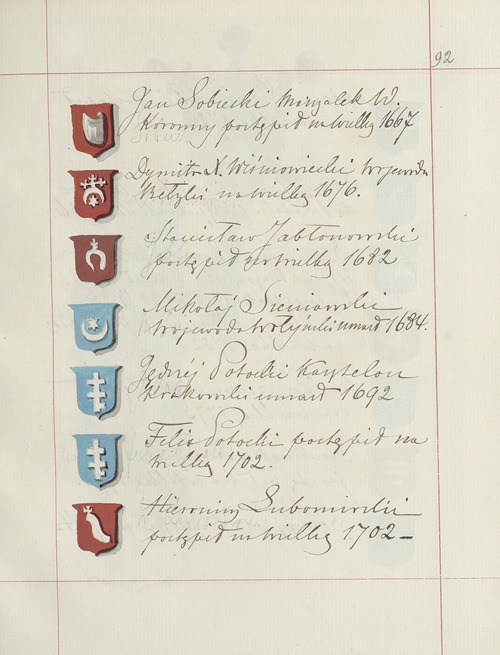 92
Jan Sobieski Marszałek W.
Koronny postąpił na wielką 1667
Dymitr X. Wiśniowiecki wojewoda
Bełzki na wielką 1676.
Stanisław Jabłonowski
postąpił na wielką 1682
Mikołaj Sieniawski
wojewoda wołyński umarł 1684.
Jędrzéj Potocki Kasztelan
Krakowski umarł 1692
Felix Potocki postąpił na
wielką 1702.
Hieronim Lubomirski
postąpił na wielką 1702 –